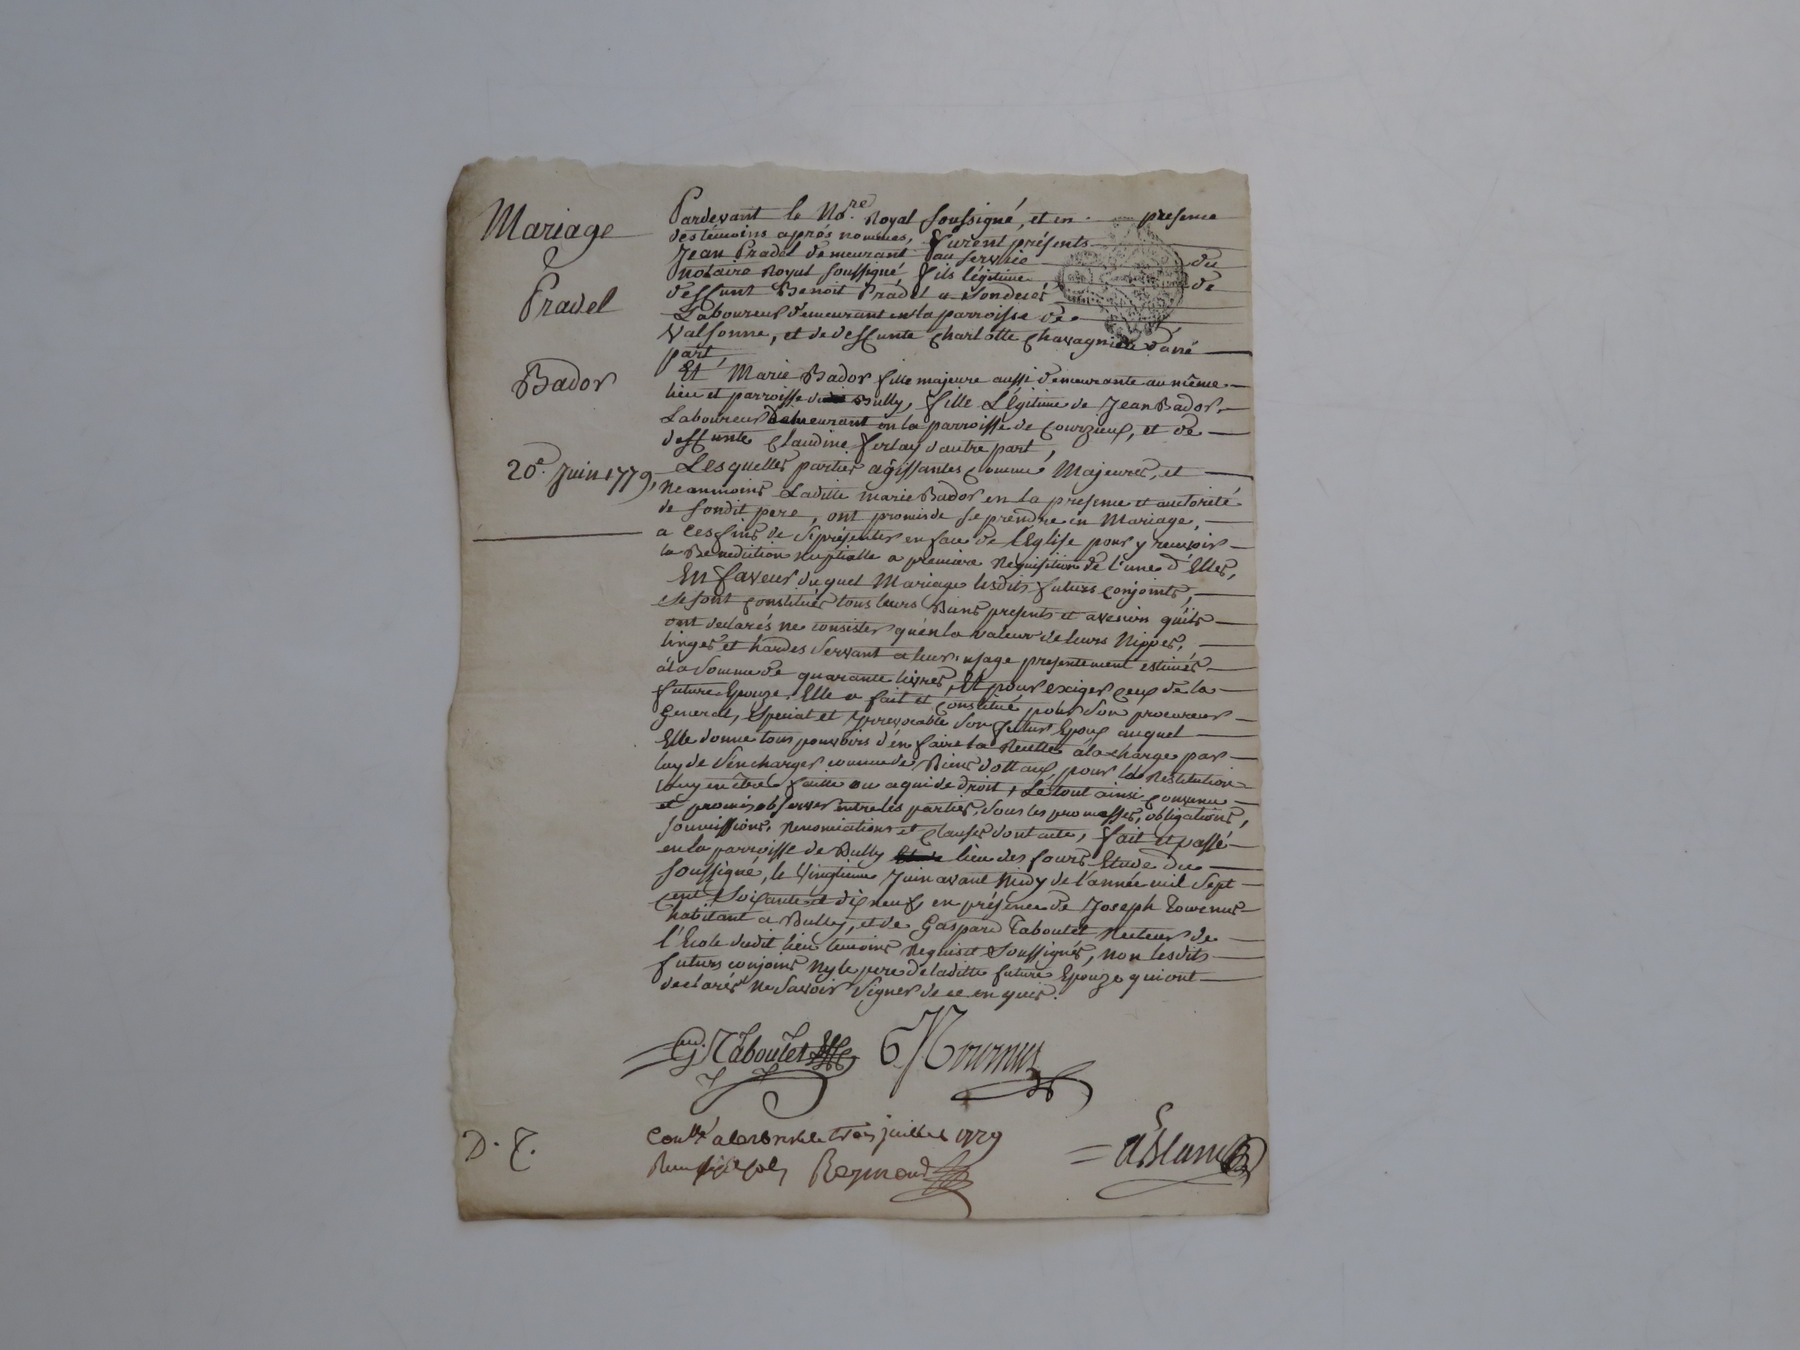 Mariage
Pradel
Bador
20e. Juin 1779,
Pardevant le Nore. Royal soussigné, et en presence
des temoins après nommés, furent présents
Jean Pradel demeurant au service du
Notaire Royal soussigné fils légitime de
deffunt Benoit Pradel
Laboureur demeurant en la parroisse de
Valsonne, et de deffunte Charlotte Chavagnieu d'une
part,
Et Marie Bador fille majeure aussi demeurante au même
lieu et parroisse de Bully, fille Légitime de Jean Bador,
Laboureur demeurant en la parroisse de Courzieux, et de
deffunte Claudine Ferlay d'autre part,
Lesquelles parties agissantes comme Majeures, et
Neanmoins Laditte marie Bador en la presence et autorité
de sondit pere, ont promis de se prendre en Mariage,
a ces fins de se présenter en face de l'Eglise pour y recevoir
la Benediction Nuptialle a premiere Requisition de l'une d'Elles,
En faveur duquel Mariage lesdits futurs conjoints,
se sont constitués tous leurs Biens presents et avenir qu'ils
ont declarés ne consister qu'en la valeur de leurs Nippes,
linges et hardes servant a leur usage presentement estimés
à la somme de quarante livres, Et pour exiger ceux de la
future Epouze, Elle a fait et constitué pour son procureur
General, Special et Yrrevocable son futur Epoux auquel
Elle donne tous pouvoirs d'en faire la Recette à la charge par
luy de s'en charger comme de Biens dottaux, pour la Restitution
en être faitte ou a qui de droit, Le tout ainsi convenu
et promis observer entre les parties, sous les promesses, obligations,
soumissions, Renonciations et clauses dont acte, fait et passé
en la parroisse de Bully lieu des fours Etude du
soussigné, le Vingtieme Juin avant Midy de l'année mil sept
cent soixante et dix neuf, en présence de Joseph Tournus
habitant a Bully, et de Gaspard Taboulet Recteur de
l'Ecole dudit lieu temoins Requis et soussignés, non lesdits
futurs conjoins Ny le pere de laditte future Epouze qui ont
declarés ne savoir signer de ce enquis.
G. Taboulet Tournus
Conllé a Larbresle le trois juillet 1779
Reymond
D. T.